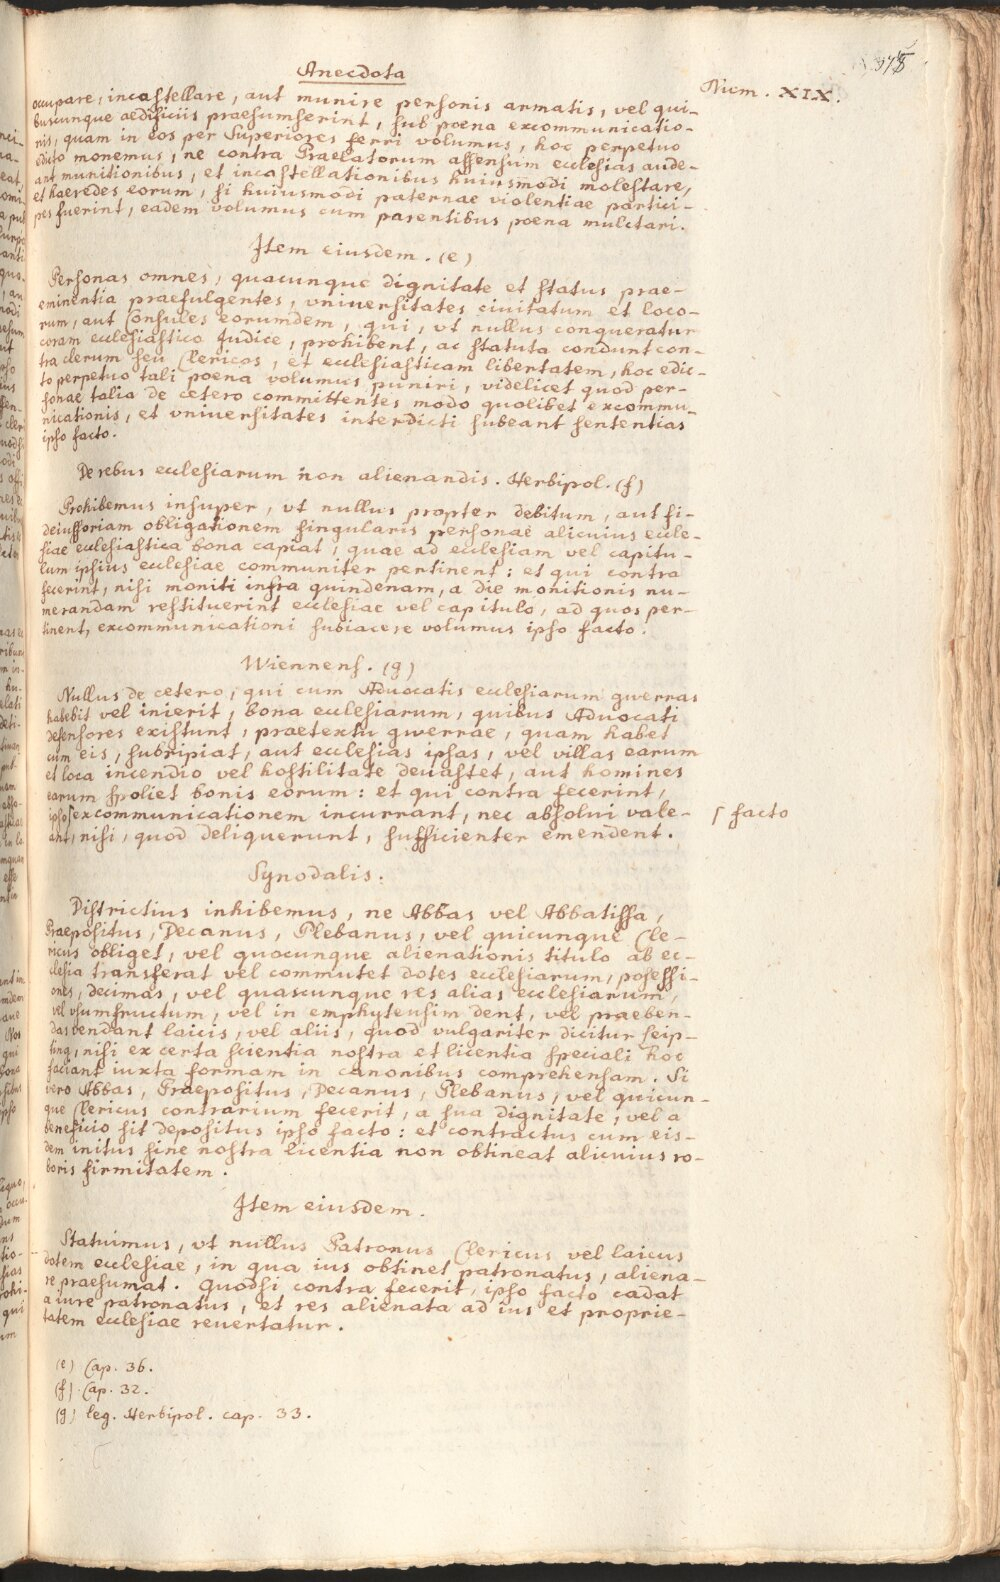 Anecdota
Num. XIX.
occupare, incastellare, aut munire personis armatis, vel qui-
buscunque aedificiis praesumserint, sub poena excommunicatio-
nis, quam in eos per Superiores ferri volumus, hoc perpetuo
edicto monemus, ne contra Praelatorum assensum ecclesias aude-
ant munitionibus, et incastellationibus huiusmodi molestare,
et haeredes eorum, si huiusmodi paternae violentiae partici-
pes fuerint, eadem volumus cum parentibus poena mulctari.
Item eiusdem. (e)
Personas omnes, quacunque dignitate et status prae-
eminentia praefulgentes, vniuersitates ciuitatum et loco-
rum, aut Consules eorumdem, qui, vt nullus conqueratur
coram ecclesiastico Iudice, prohibent, ac statuta condunt con-
tra clerum seu Clericos, et ecclesiasticam libertatem, hoc edic-
to perpetuo tali poena volumus puniri, videlicet quod per-
sonae talia de cetero committentes modo quolibet excommu-
nicationis, et vniuersitates interdicti subeant sententias
ipso facto.
De rebus ecclesiarum non alienandis. Herbipol. (f)
Prohibemus insuper, vt nullus propter debitum, aut fi-
deiussoriam obligationem singularis personae alicuius eccle-
siae ecclesiastica bona capiat, quae ad ecclesiam vel capitu-
lum ipsius ecclesiae communiter pertinent: et qui contra
fecerint, nisi moniti infra quindenam, a die monitionis nu-
merandam restituerint ecclesiae vel capitulo, ad quos per-
tinent, excommunicationi subiacere volumus ipso facto.
Wiennens. (g)
Nullus de cetero, qui cum Aduocatis ecclesiarum gwerras
habebit vel inierit, bona ecclesiarum, quibus Aduocati
defensores existunt, praetextu gwerrae, quam habet
cum eis, subripiat, aut ecclesias ipsas, vel villas earum
et loca incendio vel hostilitate deuastet, aut homines
earum spoliet bonis eorum: et qui contra fecerint,
ipso ⌈excommunicationem incurrant, nec absolui vale-
⌈ facto
ant, nisi, quod deliquerunt, sufficienter emendent.
Synodalis.
Districtius inhibemus, ne Abbas vel Abbatissa,
Praepositus, Decanus, Plebanus, vel quicunque Cle-
ricus obliget, vel quocunque alienationis titulo ab ec-
clesia transferat vel commutet dotes ecclesiarum, possessi-
ones, decimas, vel quascunque res alias ecclesiarum,
vel vsumfructum, vel in emphytensim dent, vel praeben-
das vendant laicis, vel aliis, quod vulgariter dicitur Leip-
ting, nisi ex certa scientia nostra et licentia speciali hoc
faciant iuxta formam in canonibus comprehensam. Si
vero Abbas, Praepositus, Decanus, Plebanus, vel quicun-
que Clericus contrarium fecerit, a sua dignitate, vel a
beneficio sit depositus ipso facto: et contractus cum eis-
dem initus sine nostra licentia non obtineat alicuius ro-
boris firmitatem.
Item eiusdem.
Statuimus, vt nullus Patronus Clericus vel laicus
dotem ecclesiae, in qua ius obtinet patronatus, aliena-
re praesumat. Quodsi contra fecerit, ipso facto cadat
a iure patronatus, et res alienata ad ius et proprie-
tatem ecclesiae reuertatur.
(e) Cap. 36.
(f) Cap. 32.
(g) leg. Herbipol. cap. 33.